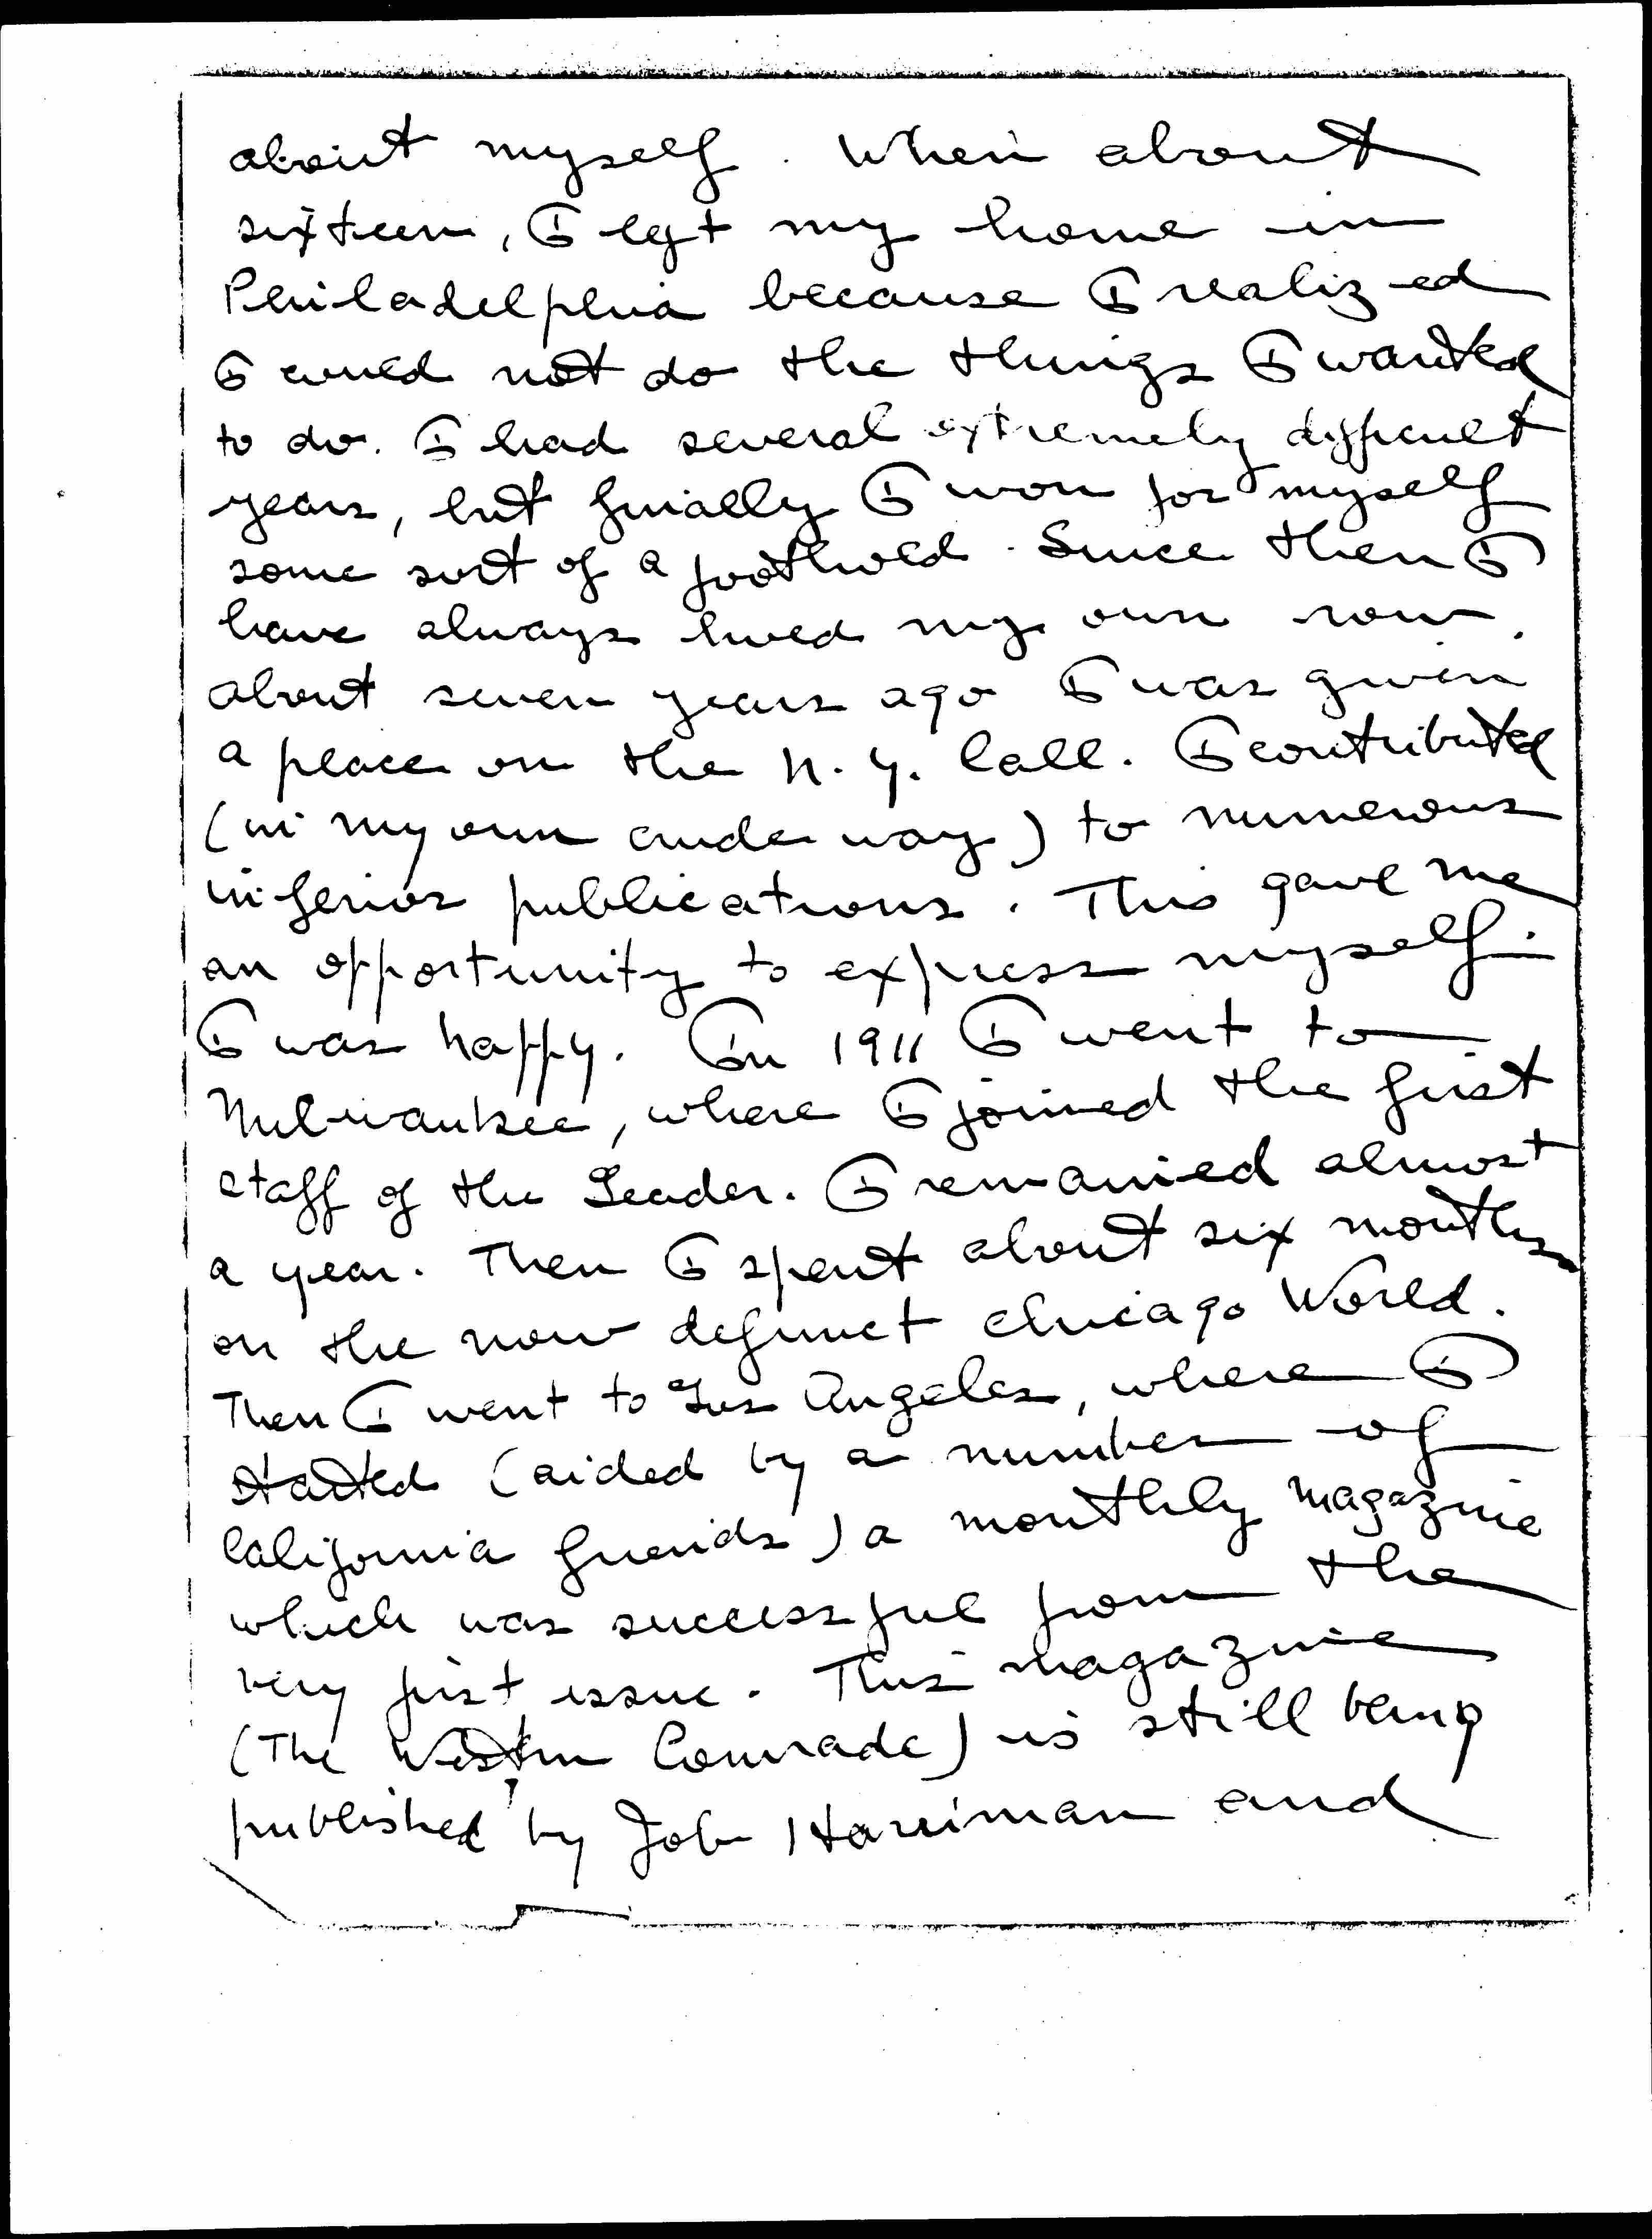 about myself. When about
sixteen, I left my home in
Philadelphia because I realized
I could not do the things I wanted
to do. I had several extremely difficult
years, but finally I won for myself
some sort of a foothold. Since then I
have always hoed my own row.
About seven years ago I was given
a place on the N. Y. Call. I contributed
(in my own crude way) to numerous
inferior publications. This gave me
an opportunity to express myself.
I was happy. In 1911 I went to
Milwaukee, where I joined the first
staff of the Leader. I remained almost
a year. Then I spent about six months
on the now defunct Chicago World.
Then I went to Los Angeles, where I
started (aided by a number of
California friends) a monthly magazine
which was successful from the
very first issue. This magazine
(The Western Comrade) is still being
published by Job Harriman and